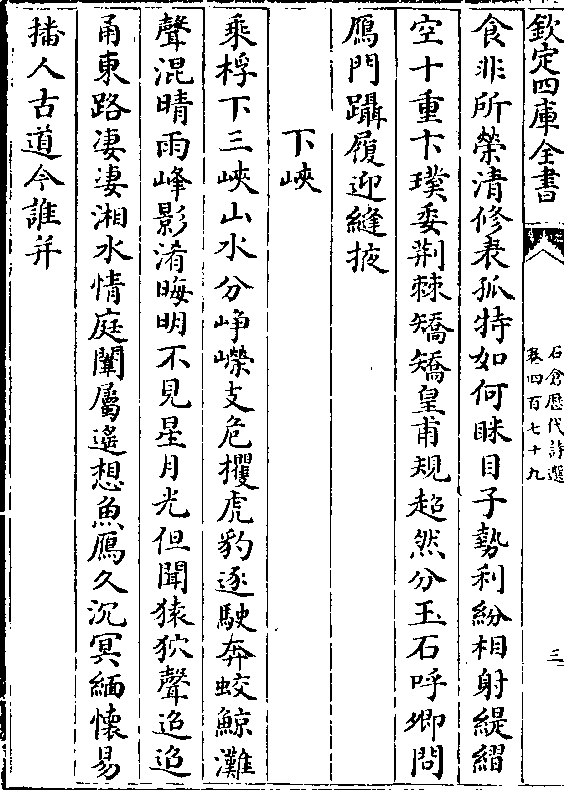 欽定四庫全書
石倉歴代詩選
卷四百七十九
三
食非所榮清修表孤特如何眯目子勢利紛相射緹縚
空十重卞璞委荆棘矯矯皇甫規超然分玉石呼卿問
鴈門躡履迎縫掖
下峽
乘桴下三峽山水分崢嶸支危攫虎豹逐駛奔蛟鯨灘
聲混晴雨峰影淆晦明不見星月光但聞猿狖聲迢迢
甬東路凄凄湘水情庭闈屬遥想魚鴈久沉冥緬懷易
播人古道今誰并